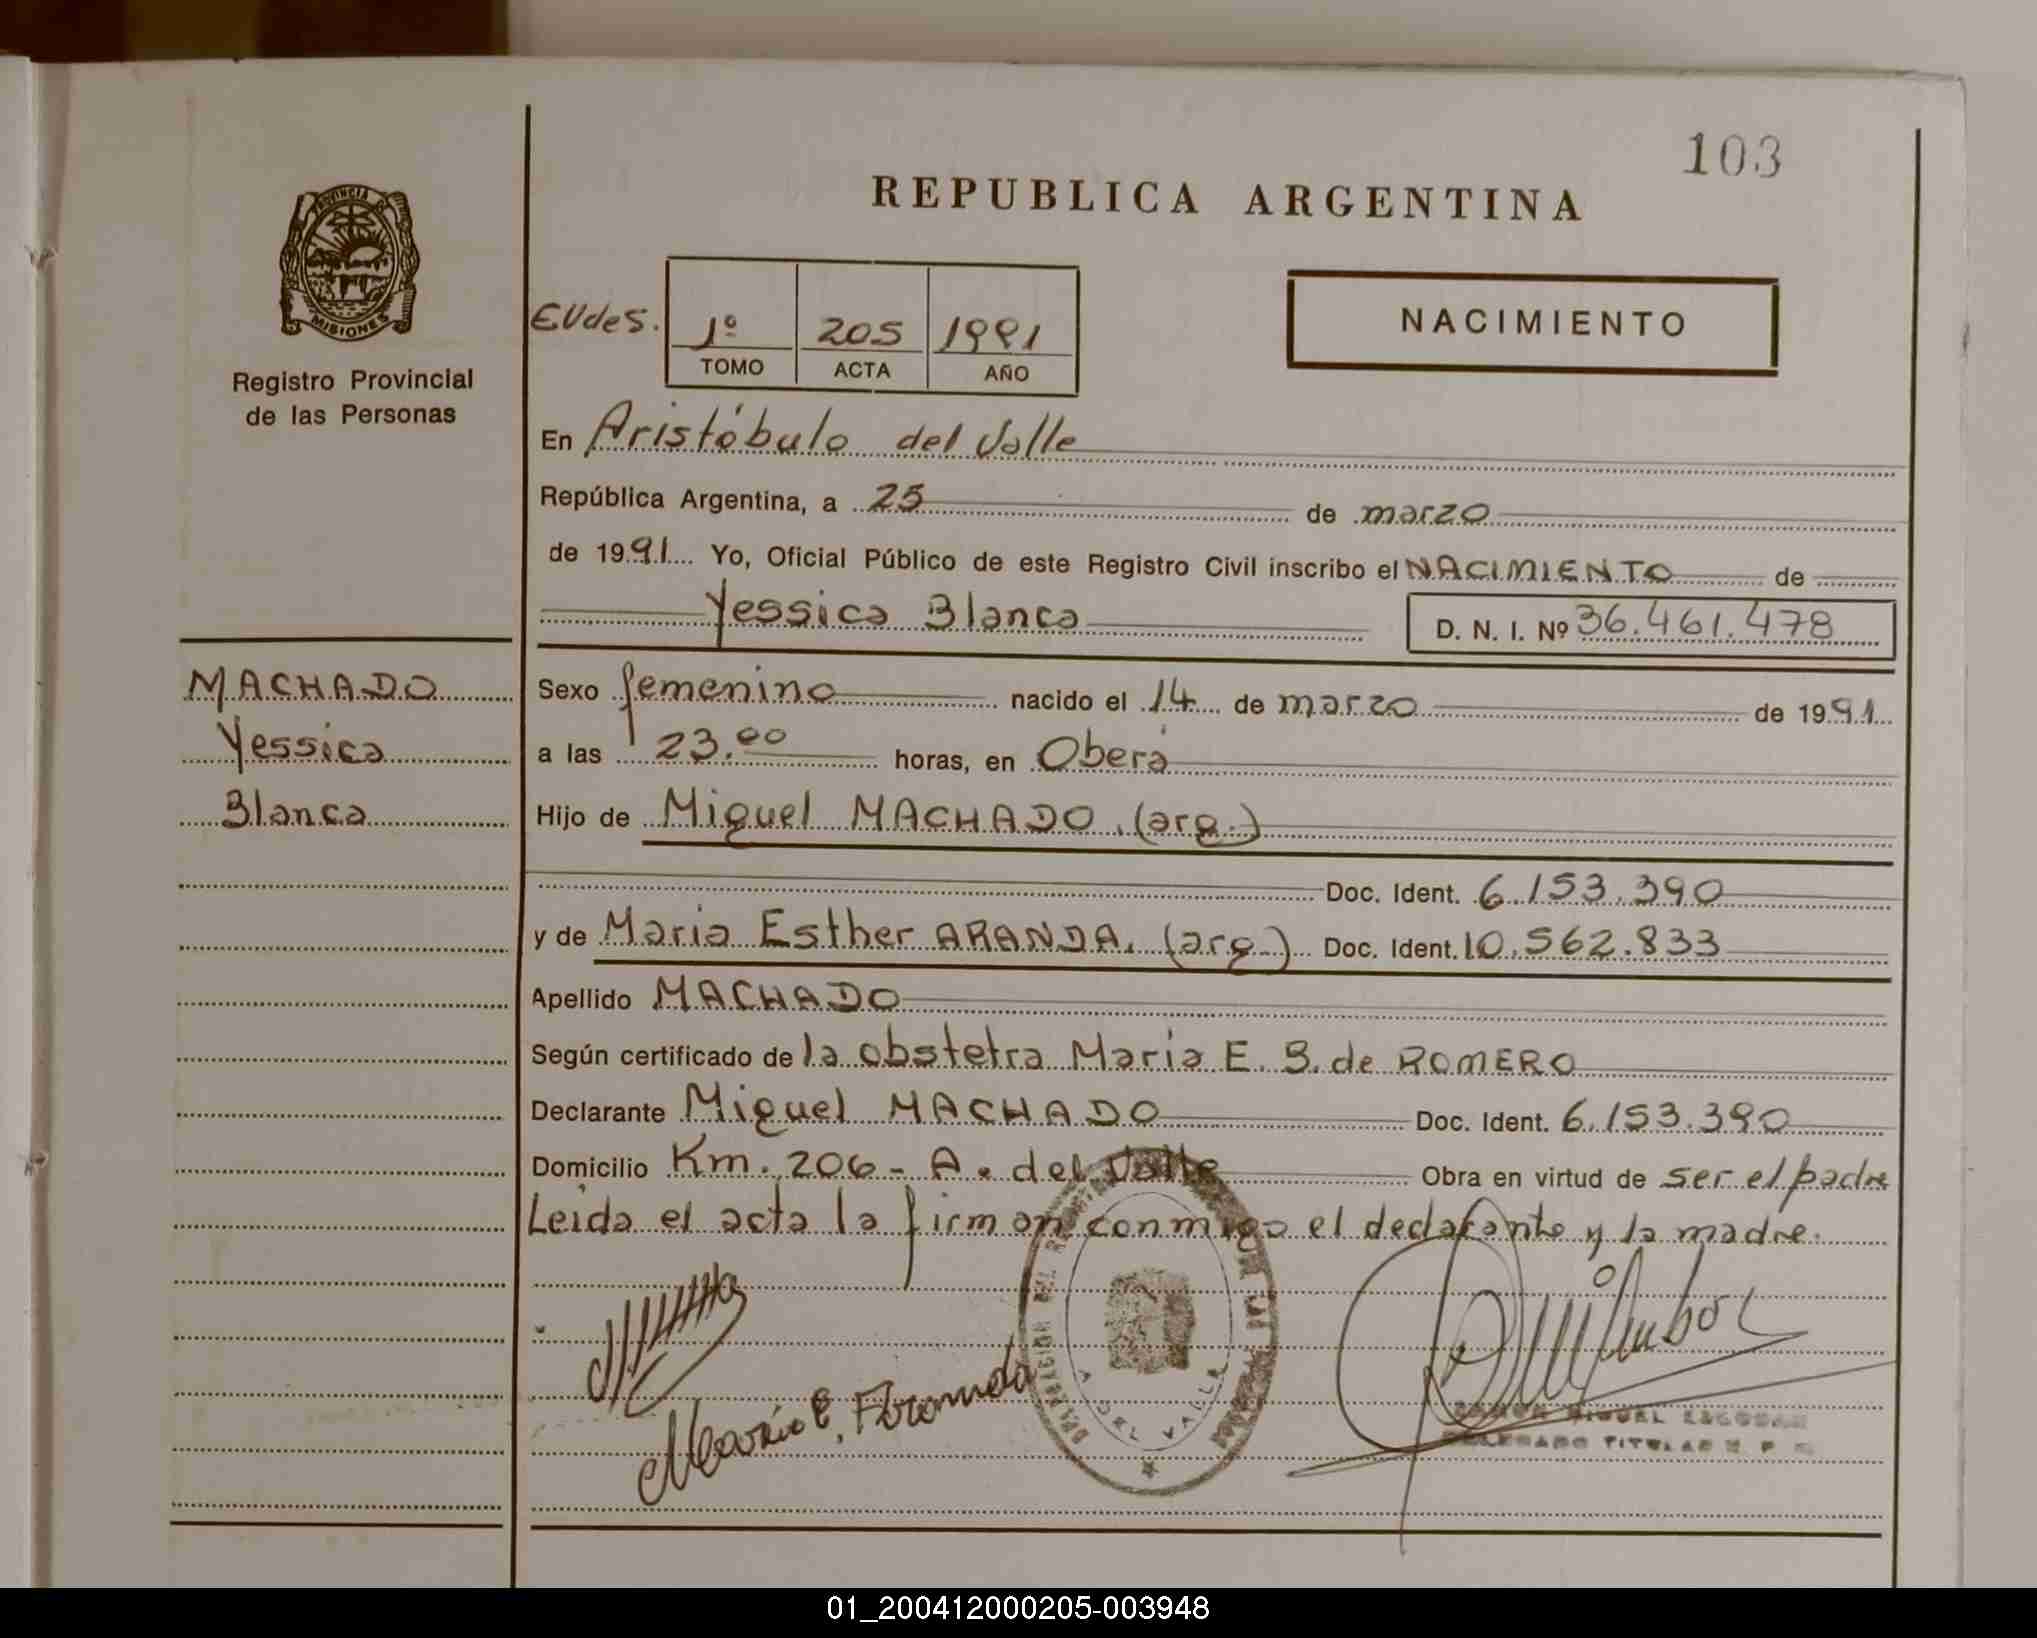 103
REPUBLICA ARGENTINA
PROVINCIA DE
MISIONES
Registro Provincial
de las Personas
EUdes.
1º 205 1991
TOMO ACTA AÑO
NACIMIENTO
En Aristóbulo del Valle
República Argentina, a 25 de marzo
de 1991 Yo, Oficial Público de este Registro Civil inscribo el NACIMIENTO de
Yessica Blanca D. N. I. Nº 36.461.478
MACHADO
Yessica
Blanca
Sexo femenino nacido el 14 de marzo de 1991
a las 23.00 horas, en Oberá
Hijo de Miguel MACHADO. (arg.)
Doc. Ident. 6.153.390
y de Maria Esther ARANDA. (arg.) Doc. Ident. 10.562.833
Apellido MACHADO
Según certificado de la obstetra Maria E. B. de ROMERO
Declarante Miguel MACHADO Doc. Ident. 6.153.390
Domicilio Km. 206 - A. del Valle Obra en virtud de ser el padre
Leida el acta la firman conmigo el declarante y la madre.
Maria E. Aranda
DELEGACION DEL REGISTRO
A. DEL VALLE
RAMON MIGUEL ESCOBAR
DELEGADO TITULAR R. P.
01_200412000205-003948